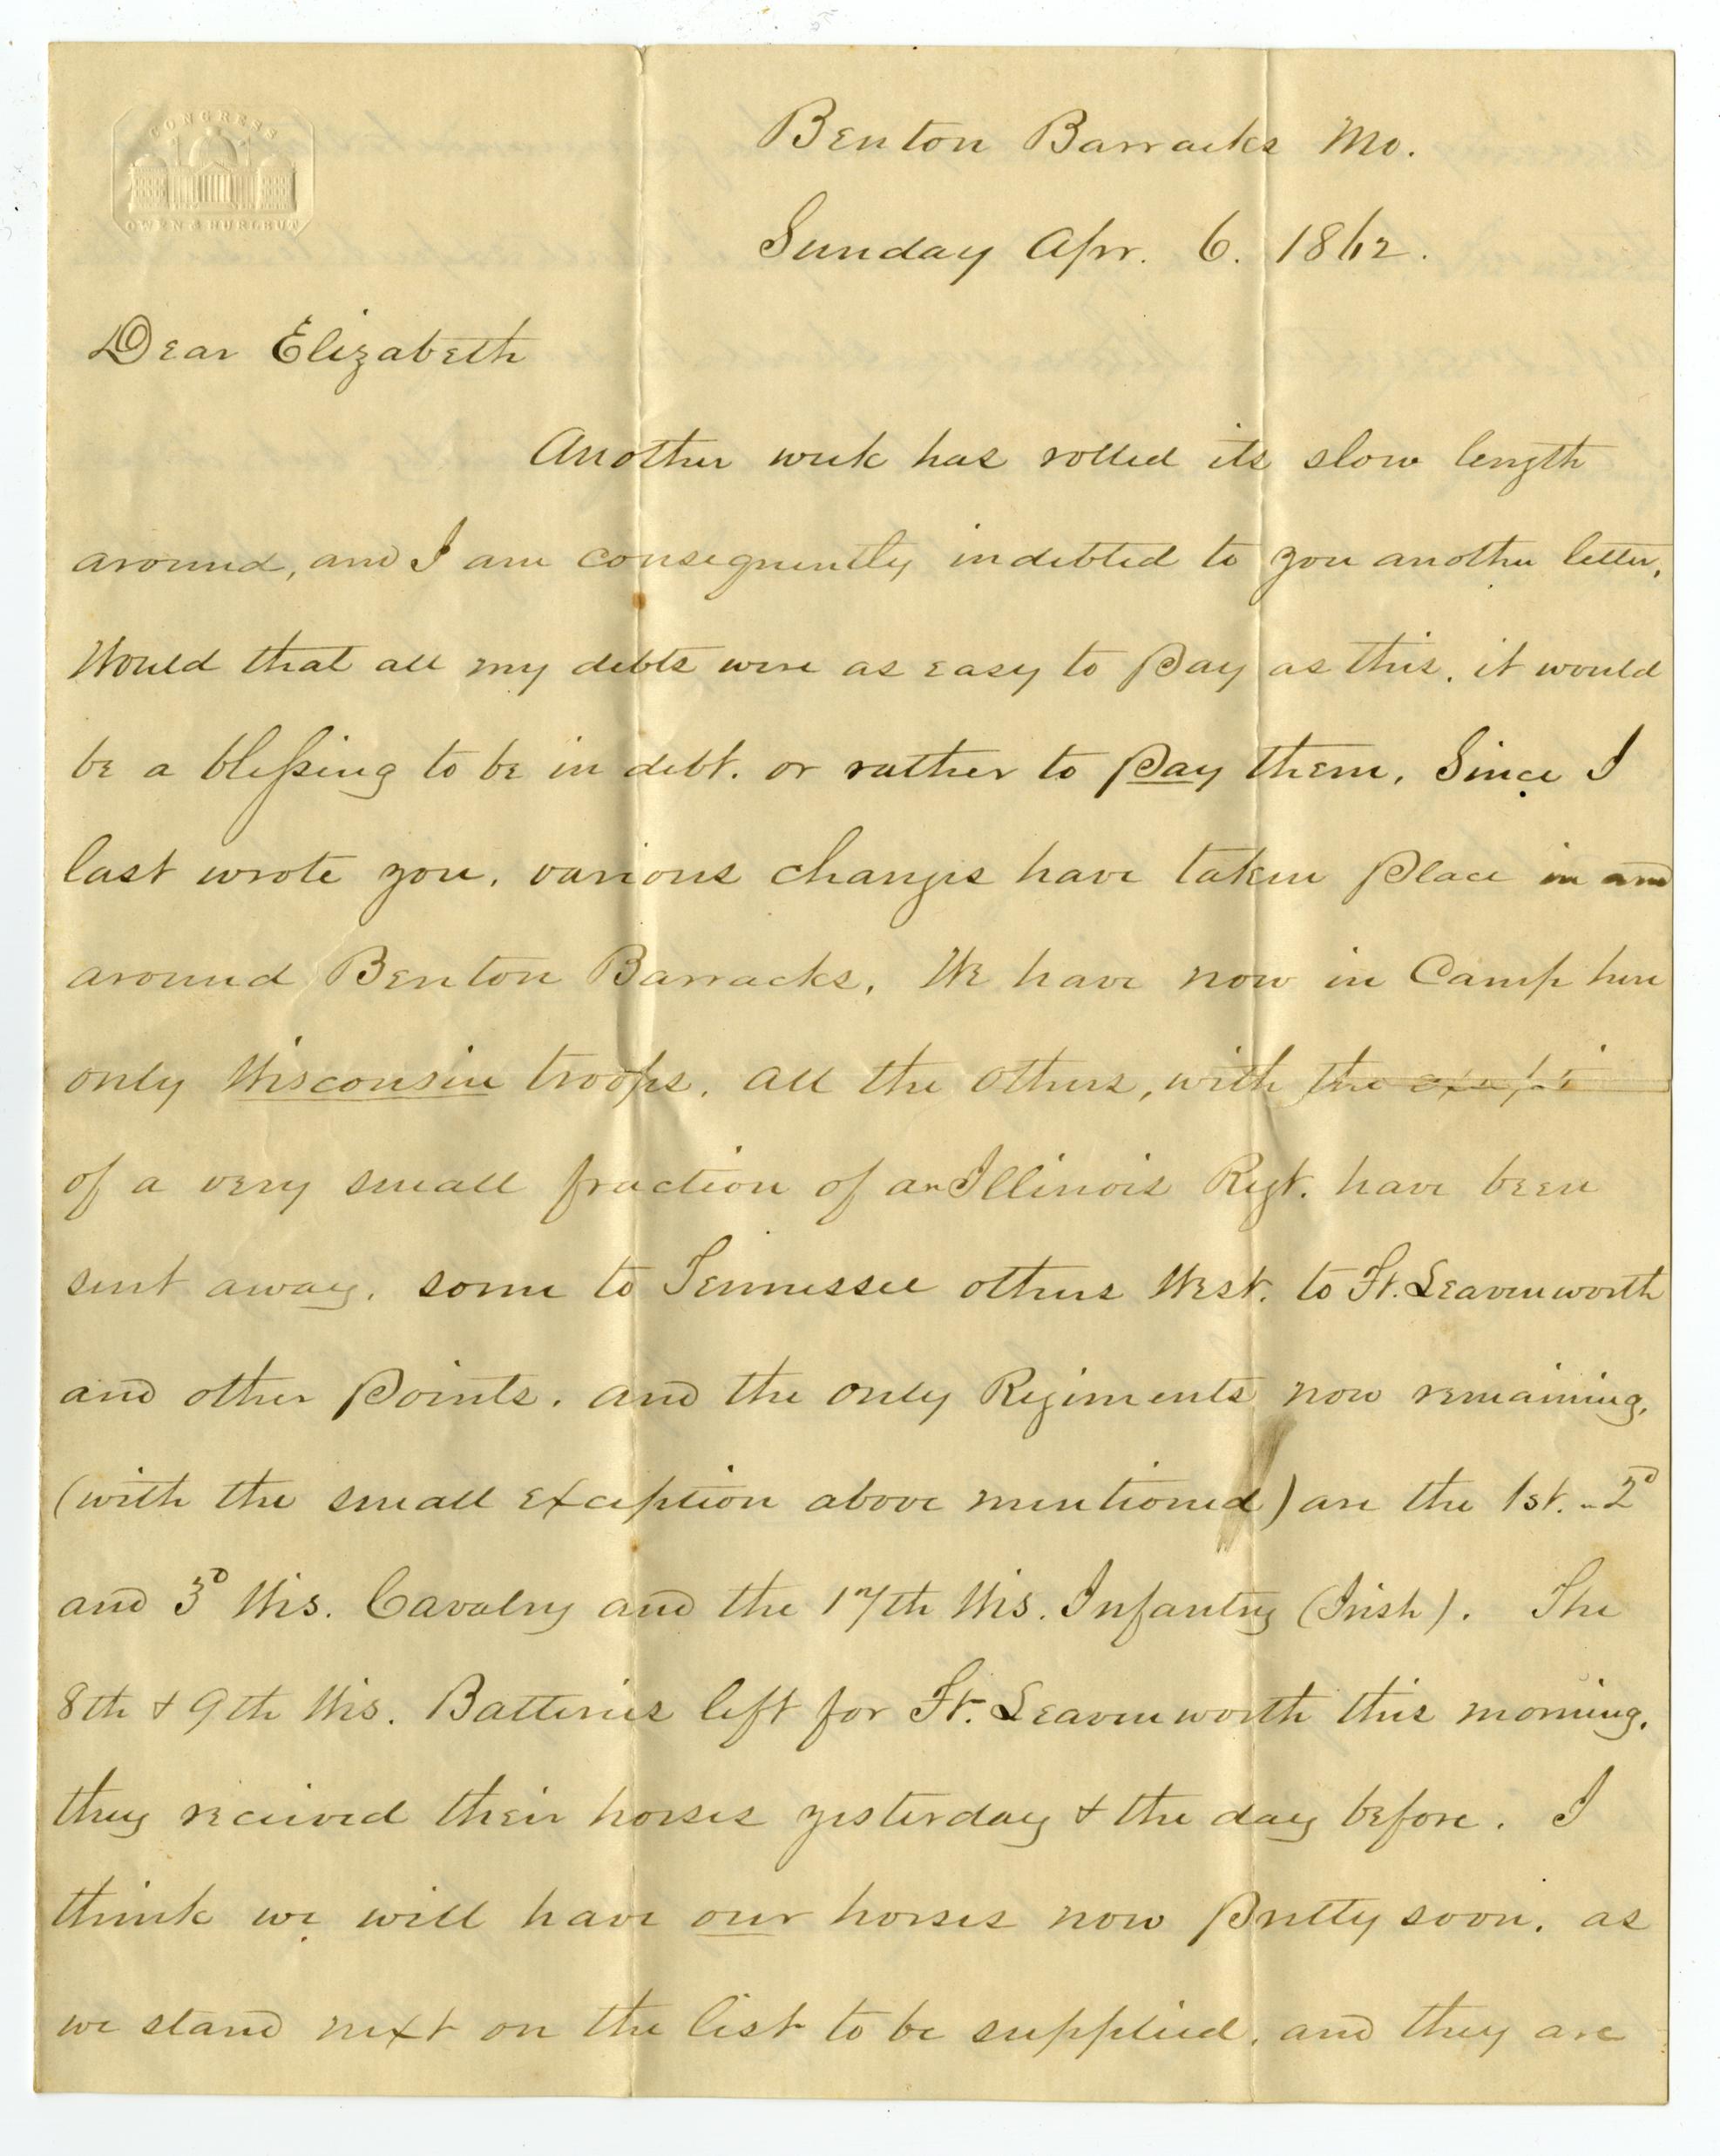 CONGRESS
OWEN & HURLBUT
Benton Barracks Mo.
Sunday Apr. 6. 1862.
Dear Elizabeth
Another week has rolled its slow length
around, and I am consequently indebted to you another letter.
Would that all my debts were as easy to pay as this. it would
be a blessing to be in debt. or rather to pay them. Since I
last wrote you, various changes have taken place in and
around Benton Barracks. We have now in Camp here
only Wisconsin troops. all the others, with the
of a very small fraction of an Illinois Regt. have been
sent away. some to Tennessee others West. to Ft. Leavenworth
and other Points. and the only Regiments now remaining,
(with the small exception above mentioned) are the 1st. - 2d
and 3d Wis. Cavalry and the 17th Wis. Infantry (Irish). The
8th & 9th Wis. Batteries left for Ft. Leavenworth this morning.
they received their horses yesterday & the day before. I
think we will have our horses now Pretty soon. as
we stand next on the list to be supplied. and they are